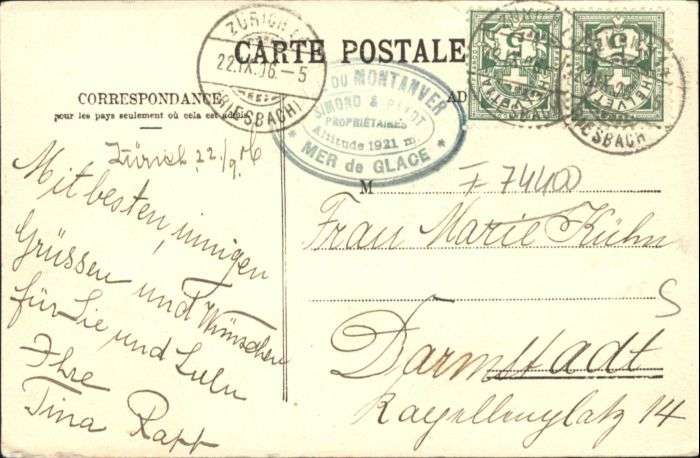 CARTE POSTALE
CORRESPONDANCE
pour les pays seulement où cela est admis
ZÜRICH
22.IX.06.-5
(RIESBACH)
DU MONTANVER
SIMOND &
PROPRIETAIRES
Altitude 1921 m
* MER de GLACE *
AD
5 5
HELVETIA
RIESBACH)
Zürich 22/9.06
Mit besten, innigen
Grüssen und Wünschen
für Sie und Lulu
Ihre
Tina Rapp
M
F 74400
Frau Marie Kühn
S
Darmstadt
Kapellenplatz 14